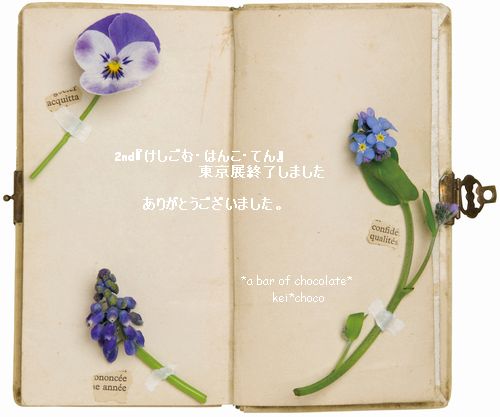 acquitta
2nd『けしごむ・はんこ・てん』
東京展終了しました
ありがとうございました。
confide
qualités
*a bar of chocolate*
kei*choco
ononcée
ne année